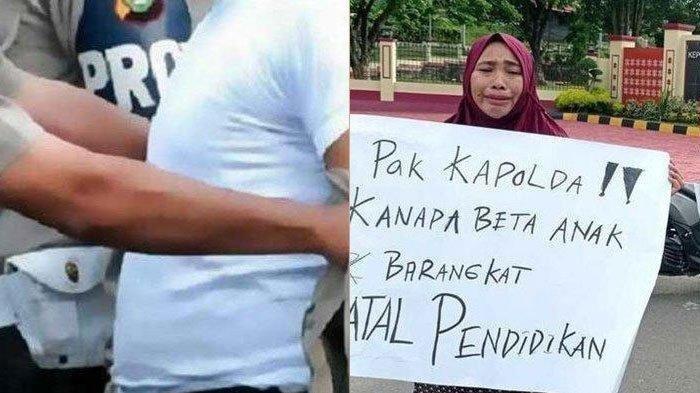 PRO
Pak KAPOLDA !!
KANAPA BETA ANAK
BARANGKAT
ATAL PENDIDIKAN
KEP